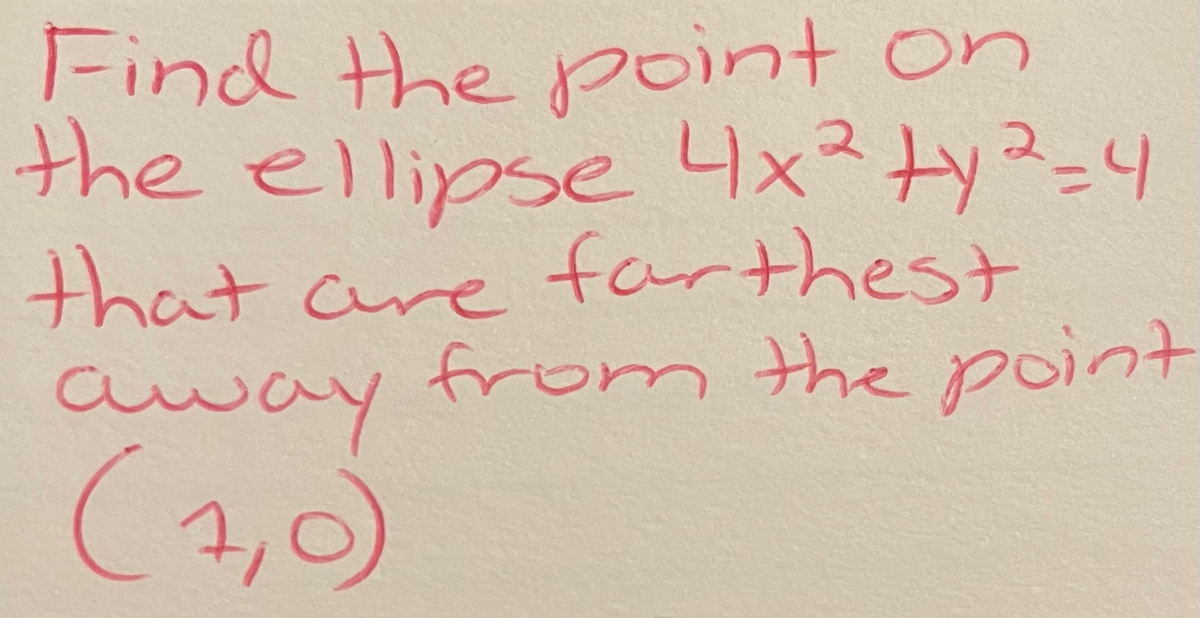 Find the point on
the ellipse 4x² +y²=4
that are farthest
away from the point
(1,0)